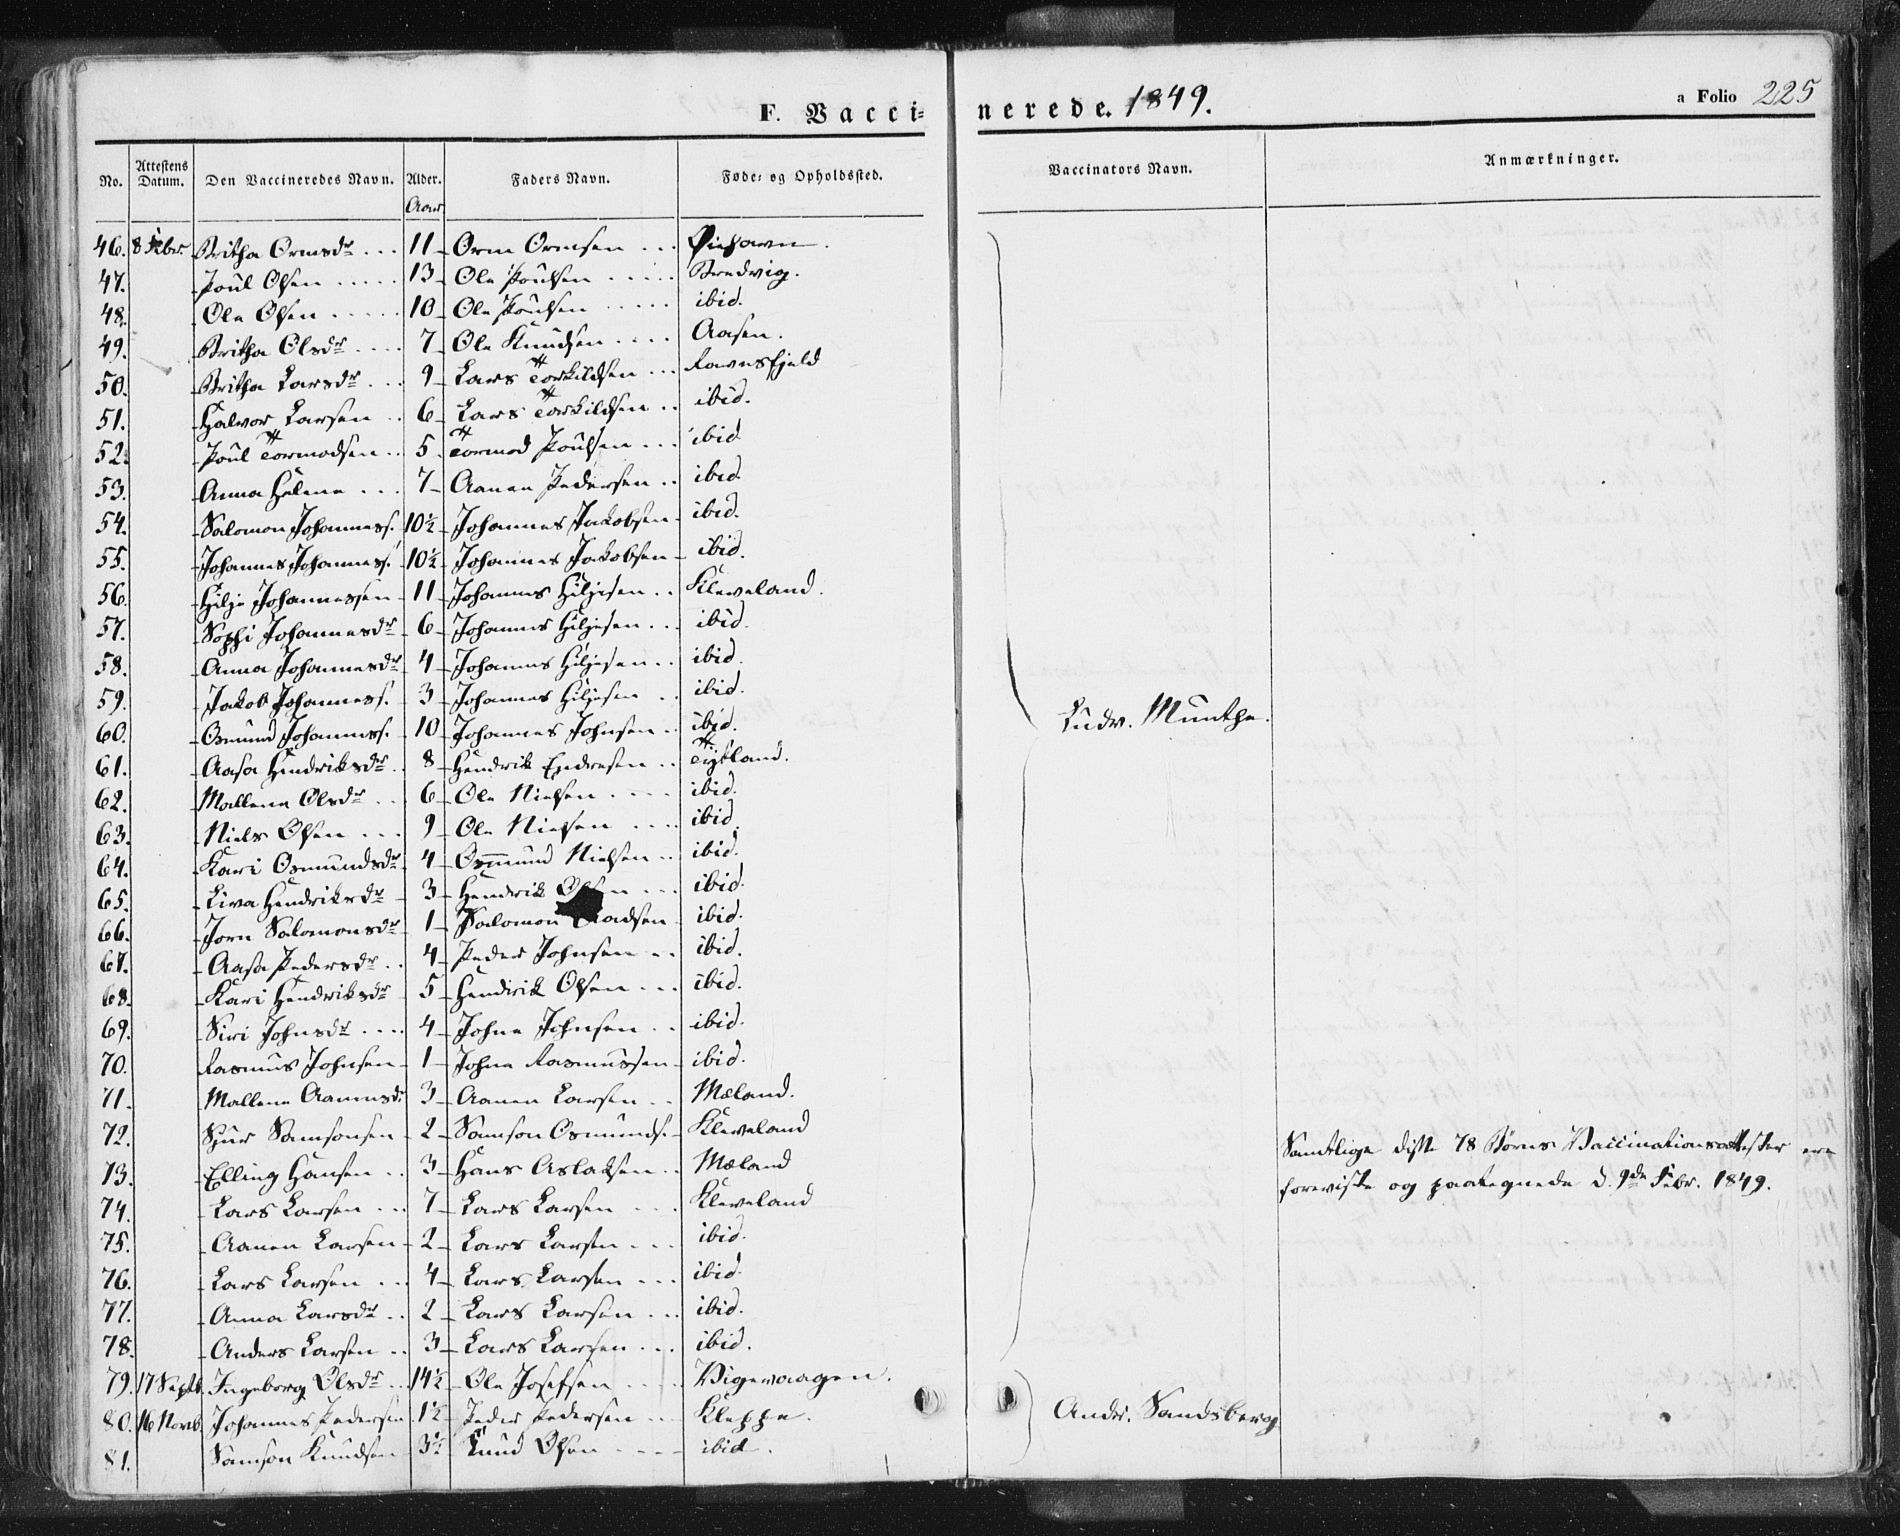 F. Vaccinerede. 1849.
a Folio 225
No. Attestens Datum. Den Vaccineredes Navn. Alder. Faders Navn. Føde- og Opholdssted. Vaccinators Navn. Anmærkninger.
Aar
46. 8 Febr. Britha Ormsdr ... 11 - Orm Ormsen ...
47. Poul Olsen ..... 13 - Ole Poulsen ..... Bredvig.
48. Ole Olsen ..... 10 Ole Poulsen ..... ibid.
49. Britha Olsdr .... 7 Ole Knudsen .... Aasen.
50. Britha Larsdr ... 9 - Lars Torkildsen ... Ravnsfjeld
51. Halvor Larsen .. 6 - Lars Torkildsen .. ibid.
52. Poul Tormodsen .. 5 Tormod Poulsen ... ibid
53. Anna Helene ... 7 - Aanen Pedersen .. ibid.
54. Salomon Johanness. 10½ Johannes Jakobsen - ibid.
55. Johannes Johanness. 10½ Johannes Jakobsen - ibid.
56. Hilje Johannessen - 11 - Johannes Hiljesen .. Kleveland.
57. Sophi Johannesdr - 6 - Johannes Hiljesen ... ibid.
58. Anna Johannesdr - 4 - Johannes Hiljesen .. ibid.
59. Jakob Johanness. 3 Johannes Hiljesen .. ibid.
60. Osmund Johanness. 10 Johannes Johnsen .. ibid.
61. Aasa Hendriksdr .. 8 - Hendrik Endresen .. Tytland.
62. Mallene Olsdr ... 6 - Ole Nielsen .... ibid.
63. Niels Olsen ... 9 - Ole Nielsen .... ibid.
64. Kari Osmundsdr - 4 - Osmund Nielsen .. ibid.
65. Liva Hendriksdr - 3 - Hendrik Olsen ... ibid.
66. Jorn Salomonsdr - 1 - Salomon ibid.
67. Aasa Pedersdr .. 4 - Peder Johnsen .. ibid.
68. Kari Hendriksdr 5 - Hendrik Olsen ... ibid.
69. Siri Johnsdr .... 4 - Johne Johnsen .. ibid.
70. Rasmus Johnsen - 1 - Johne Rasmussen - ibid.
71. Mallene Aanensd. 3 - Aanen Larsen .. Mæland.
72. Sjur Samsonsen - 2 - Samson Osmunds. - Kleveland
73. Elling Hansen .. 3 - Hans Aslaksen .. Mæland
74. Lars Larsen ... 7 - Lars Larsen ... Kleveland
75. Aanen Larsen - 2 - Lars Larsen ... ibid.
76. Lars Larsen ... 4 - Lars Larsen ... ibid.
77. Anna Larsdr .. 2 - Lars Larsen ... ibid.
78. Anders Larsen .. 3 - Lars Larsen ... ibid.
79. 17 Septb. Ingeborg Olsdr .. 14½ - Ole Josefsen .... Vigevaagen.
80. 16 Novb. Johannes Pedersen 1½ - Peder Pedersen ... Kleppe.
81. Samson Knudsen - 3½ - Knud Olsen .... ibid.
Ludv. Munthe.
Andr. Sandsberg
Samtlige disse 78 Børns Vaccinationsattester ere
foreviste og paategnede d. 9de Febr. 1849.